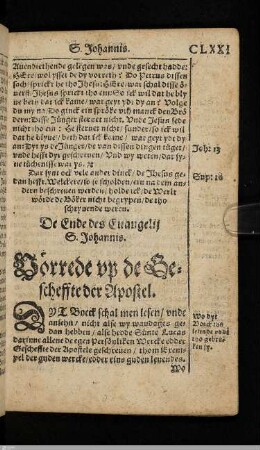 S. Johannis.
CLXXI
Auendtethende gelegen was / vnde gesecht hadde:
Here / wol ysset de dy vorreth? Do Petrus dissen
sach / sprickt he tho Jhesu: Here / wat schal disse
Jhesus sprickt tho em: So ick wil dat he bly
ue beth dat ick kame / wat geyt ydt dy an? Volge
du my na
Disse Jünger steruet nicht. Vnde Jesus sede
nicht tho em: He steruet nicht / sunder / so ick wil
dat he blyue / beth dat ick kame / wat geyt ydt dy
an? Dyt ys de Jünger / de van dissen dingen tüget /
vnde hefft dyt geschreuen / Vnd wy weten / dat sy-
ne tüchenisse war ys.
Joh: 13
Dar synt ock vele ander dinck / de Jhesus ge-
dan hefft. Welckere / so se scholden / ein na dem an-
deren beschreuen werden / holde ick / de Werlt
wörde de Böker nicht begrypen / de tho
schryuende weren.
Sup: 20
De Ende des Euangelij
S. Johannis.
Vörrede vp de Ge-
scheffte der Apostel.
DYT Boeck schal men lesen / vnde
ansehn / nicht alse wy wandages ge-
dan hebben / alse hedde Sünte Lucas
darinne allene de egen Persönliken Wercke edder
Gescheffte der Apostele geschreuen / thom Exem-
pel der guden wercke / edder eins guden leuendes.
Wo dyt
Boeck tho
lesende vnde
tho gebru-
ken sy.
Wo